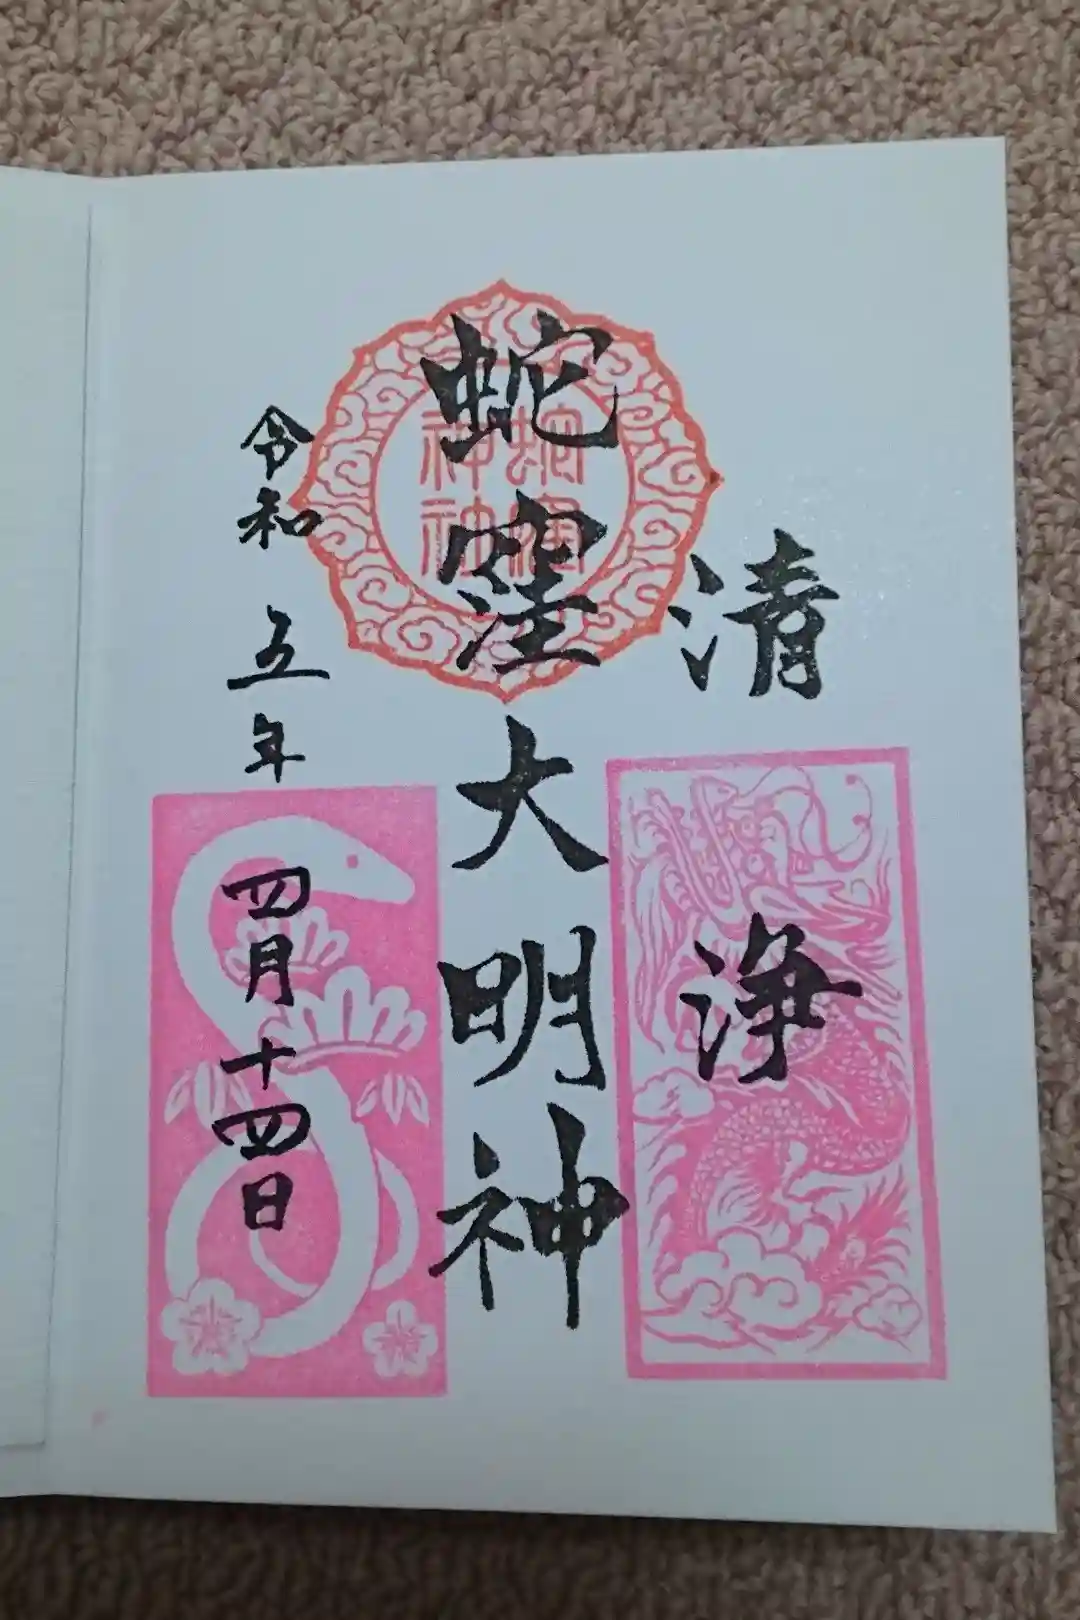 清浄
蛇窪大明神
蛇窪神社
令和五年四月十四日